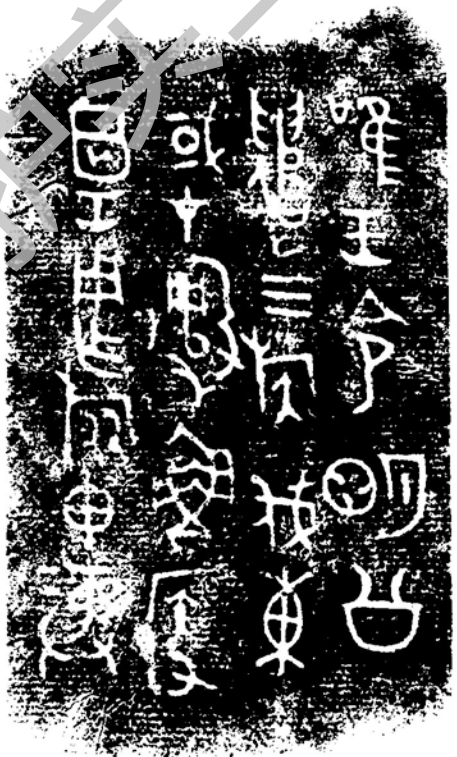 唯王令明公
遣三族伐東
或才魯侯又
囧工用乍旅彝